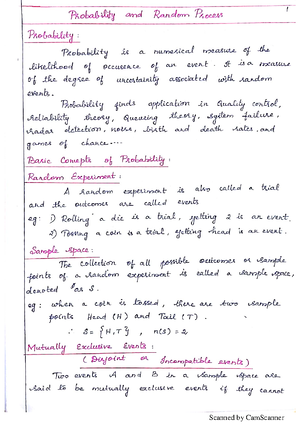 1
Probability and Random Process
Probability :
Probability is a numerical measure of the
likelihood of occurence of an event. It is a measure
of the degree of uncertainity associated with random
events.
Probability finds application in Quality control,
reliability theory, Queueing theory, system failure,
radar detection, noise, birth and death rates and
games of chance....
Basic Concepts of Probability :
Random Experiment :
A random experiment is also called a trial
and the outcomes are called events
eg: 1) Rolling a die is a trial, getting 2 is an event.
2) Tossing a coin is a trial, getting head is an event.
Sample Space :
The collection of all possible outcomes or sample
points of a random experiment is called a sample space,
denoted as S.
eg: when a coin is tossed, there are two sample
points Head (H) and Tail (T).
∴ S = {H, T}, n(S) = 2
Mutually Exclusive Events :
(Disjoint or Incompatible events)
Two events A and B in a sample space are
said to be mutually exclusive events if they cannot
Scanned by CamScanner